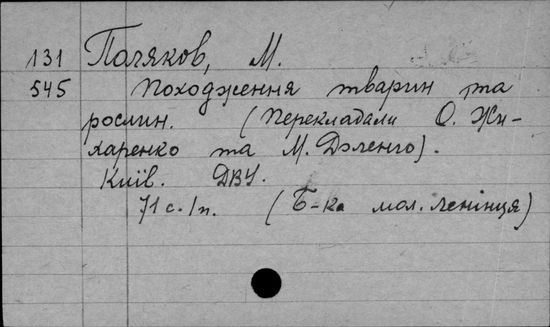 131 Поляков, М.
545 Походження тварин та
рослин. (Перекладали О. Жи-
харенко та М. Доленго).
Київ. ДВУ.
71 с. In. (Б-ка мол. ленінця)